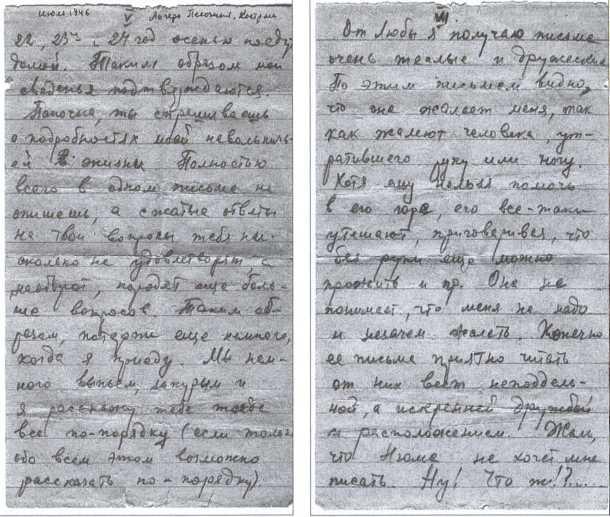 июль 1946
V
Лагерь Пеюшная, Кострома
22, 23й, 24 год осенью поедут
домой. Таким образом мои
сведенья подтверждаются.
Папочка, ты спрашиваешь
о подробностях моей невольничь-
ей жизни. Полностью
всего в одном письме не
опишешь, а сжатые ответы
на твои вопросы тебя ни-
сколько не удовлетворят, а
наоборот, породят еще боль-
ше вопросов. Таким об-
разом, потерпи еще немного,
когда я приеду. Мы нем-
ного выпьем, закурим и
я расскажу тебе тогда
все по-порядку (если только
обо всем этом возможно
рассказать по-порядку).
VII
От Любы я получаю письма
очень теплые и дружеские.
По этим письмам видно,
что она жалеет меня, так
как жалеют человека, ут-
ратившего руку или ногу.
Хотя ему нельзя помочь
в его горе, его все-таки
утешают, приговаривая, что
без руки еще можно
прожить и пр. Она не
понимает, что меня не надо
и незачем жалеть. Конечно
ее письма приятно читать
от них веет неподдель-
ной, а искренней дружбой
и расположением. Жаль,
что Нюма не хочет мне
писать. Ну! Что ж!?...